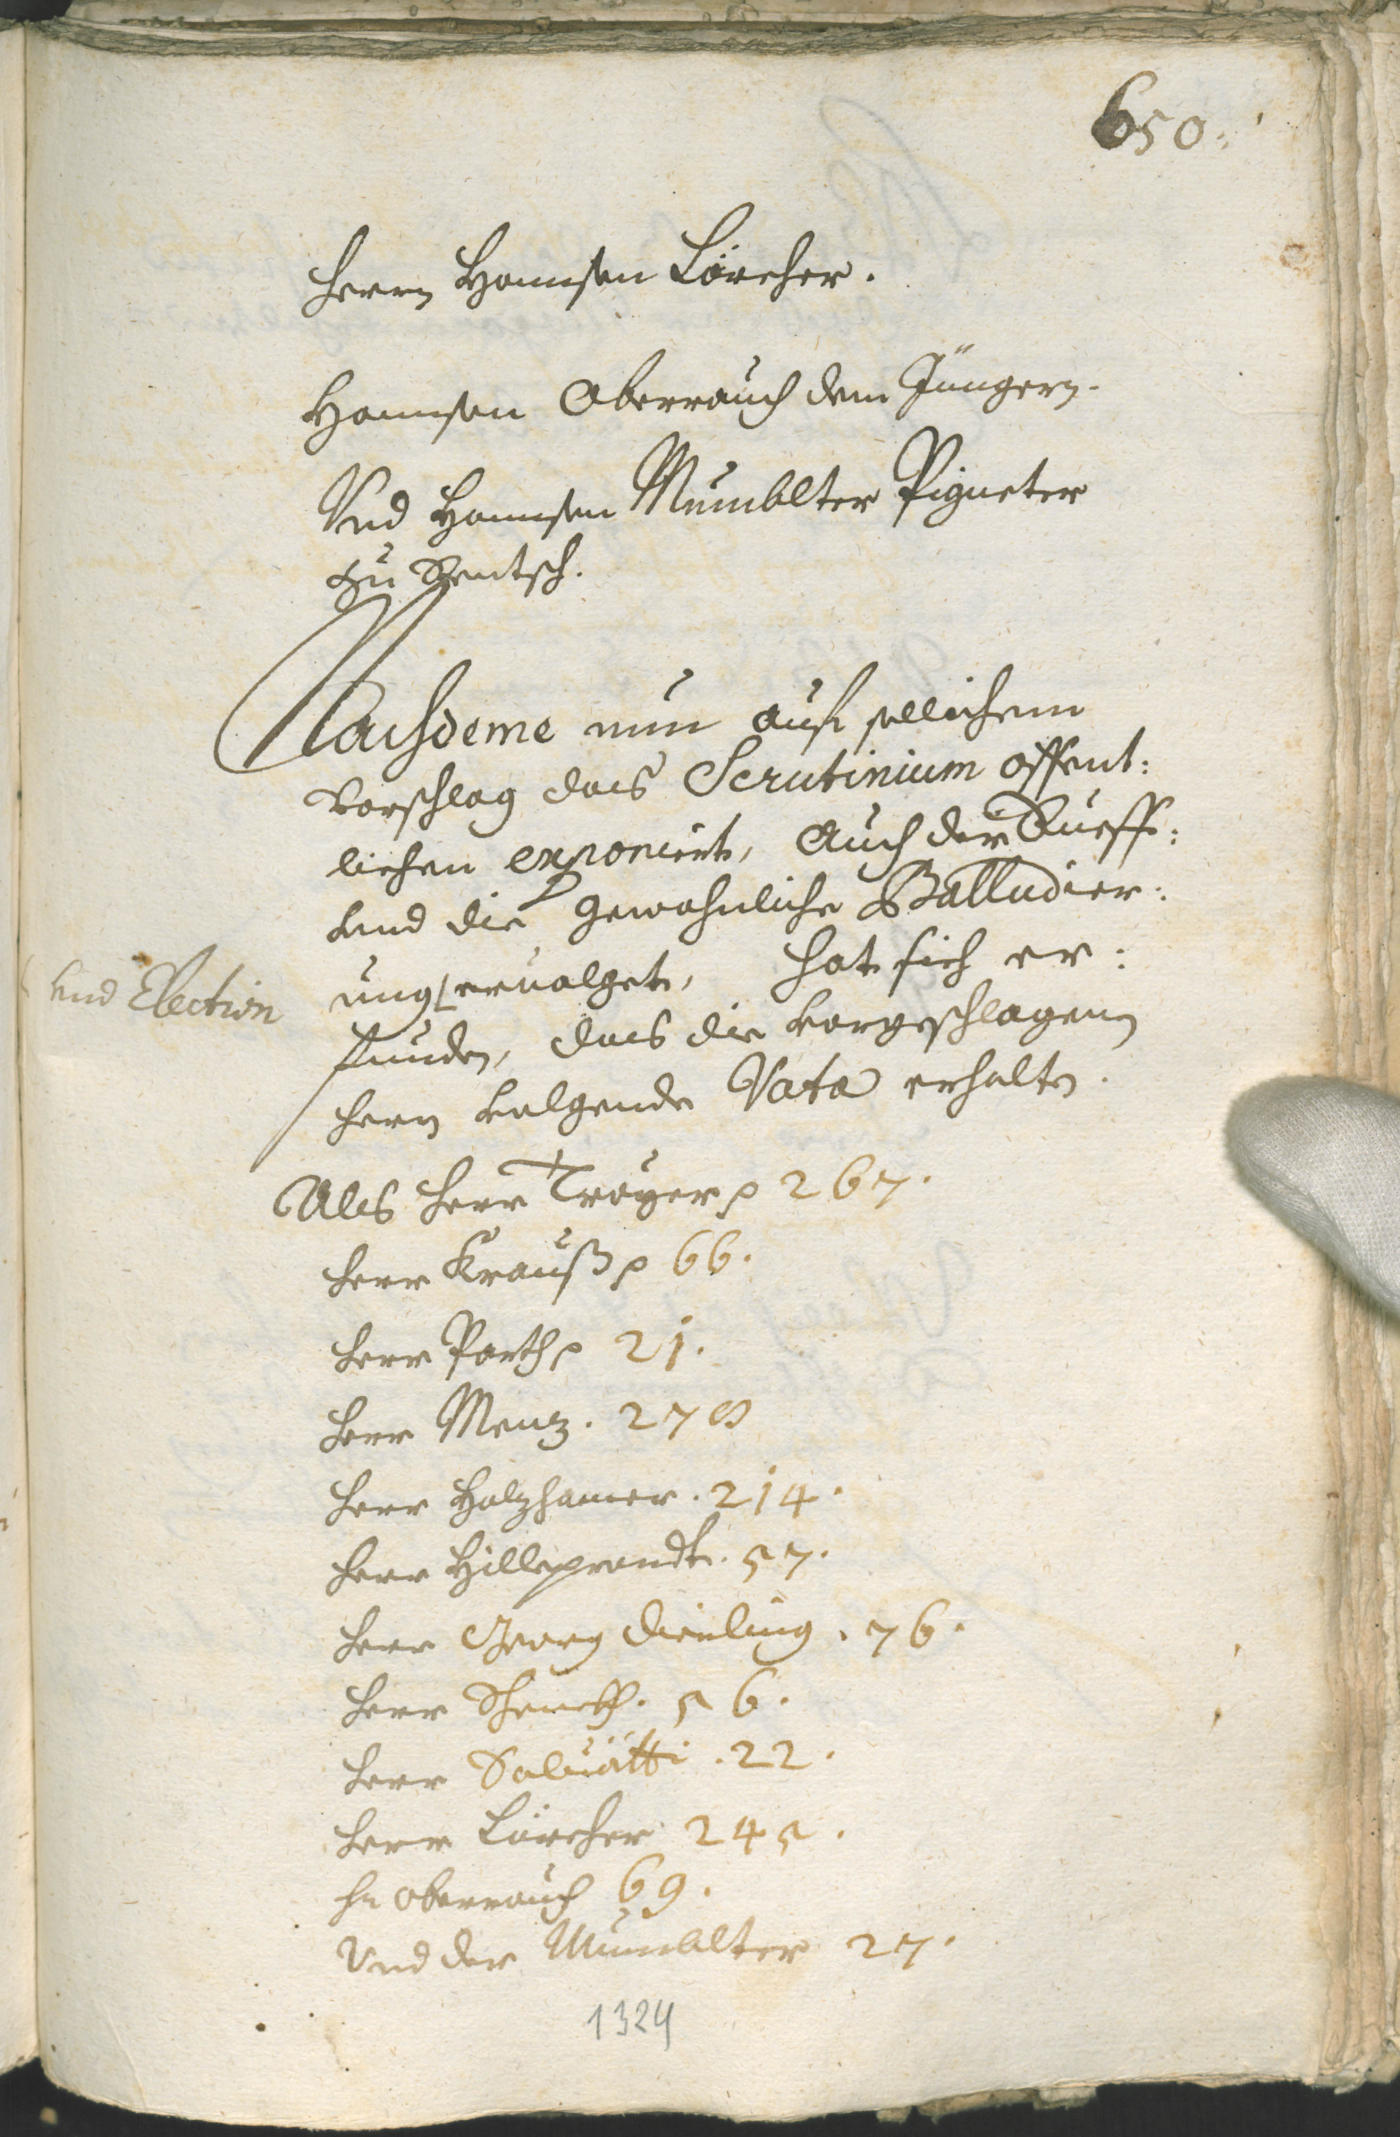 650.
Herrn Hannsen Lörcher.
Hannsen Oberrauch dem Jüngern.
Vnd Hannsen Mumblter Pigneter
zu Rentsch.
Nachdeme nun auf sollichem
vorschlag das Scrutinium offent:
lichen exponiert, Auch der Rueff:
vnd die gewohnliche Balludier:
und Election
ung eruolget, hat sich er:
funden, das die vorgeschlagenen
herrn volgende Vota erhalten.
Als Herr Troyer p 267.
Herr Krauß p 66.
Herr Parth p 21.
Herr Menz. 278
Herr Holzhamer. 214.
Herr Hilleprandt. 57.
Herr Georg Dieling. 76.
Herr 56.
Herr Saluatti. 22.
Herr Lörcher 245.
Hr Oberrauch 69.
Vnd der Mumblter 27.
1324